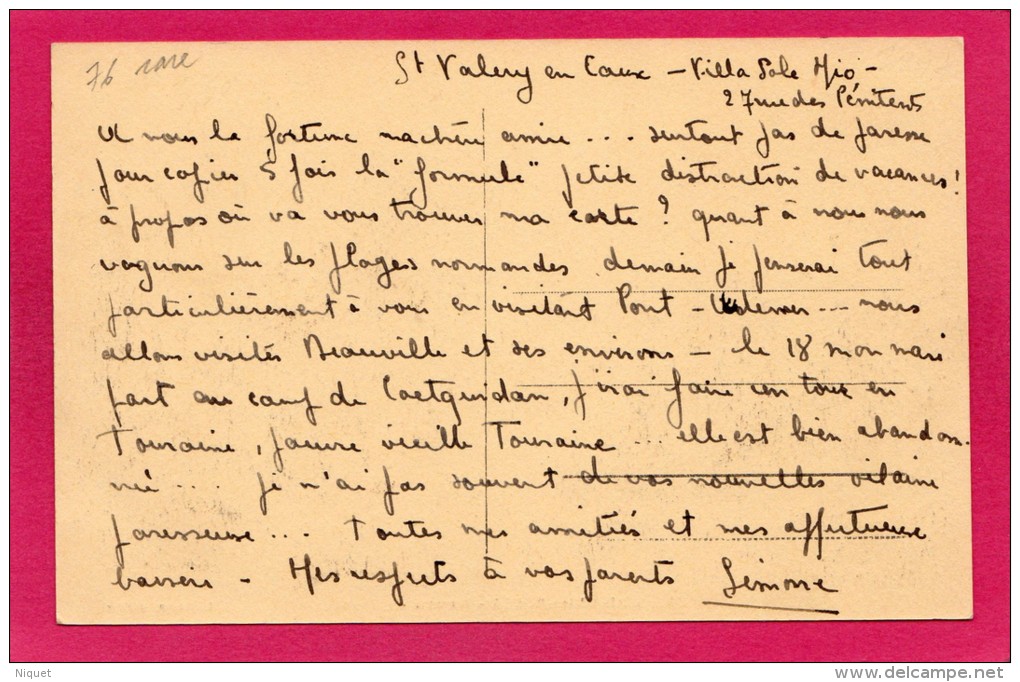 76 rare
St Valery en Caux - Villa Sole Mio -
27 rue des Pénitents
A nous la fortune ma chère amie ... surtout pas de paresse
pour copier 5 fois la "formule" petite distraction de vacances !
à propos où va vous trouver ma carte ? quant à nous nous
vaguons sur les plages normandes demain je penserai tout
particulièrement à vous en visitant Pont-Audemer ... nous
allons visités Deauville et ses environs - le 18 mon mari
part au camp de Coetquidan, j'irai faire un tour en
Touraine, pauvre vieille Touraine ... elle est bien abandon-
née ... je n'ai pas souvent de vos nouvelles vilaine
paresseuse ... Toutes mes amitiés et mes affectueux
baisers - Mes respects à vos parents Simone
Niquet
www.delcampe.net